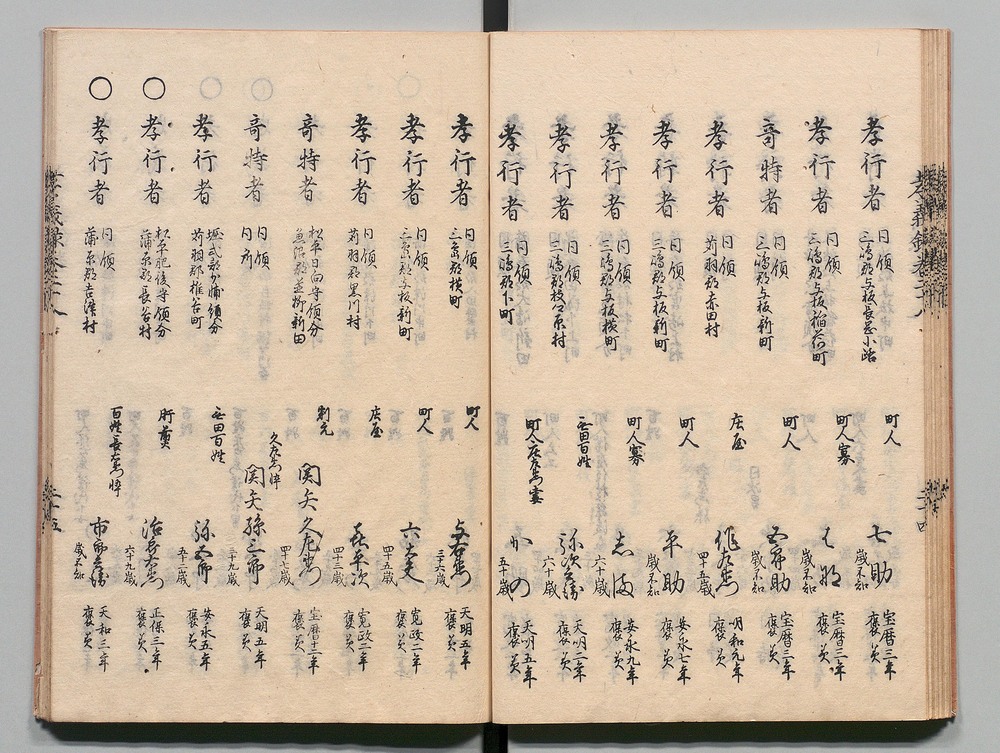 孝行者 同領 三嶋郡与板長恩小路 町人 七助 歳不知 宝暦三年 褒美
孝行者 同領 三嶋郡与板稲荷町 町人寡 歳不知 宝暦三年 褒美
奇特者 同領 三嶋郡与板新町 町人 五郎助 歳不知 宝暦三年 褒美
孝行者 同領 苅羽郡赤田村 庄屋 四十五歳 明和元年 褒美
孝行者 同領 三嶋郡与板新町 町人 平助 歳不知 安永七年 褒美
孝行者 同領 三嶋郡与板横町 町人寡 六十歳 安永九年 褒美
孝行者 同領 無田百姓 弥次兵衛 六十歳 天明二年 褒美
孝行者 同領 三嶋郡下町 かの 五十歳 天明五年 褒美
孝行者 同領 三嶋郡横町 町人 与右衛門 三十六歳 天明五年 褒美
孝行者 同領 三嶋郡与板新町 町人 六太夫 四十五歳 寛政二年 褒美
孝行者 同領 苅羽郡黒川村 庄屋 喜平次 四十三歳 寛政二年 褒美
奇特者 松平日向守領分 魚沼郡並柳新田 割元 関矢久左衛門 四十七歳 宝暦十二年 褒美
奇特者 同領 同所 久左衛門悴 関矢孫三郎 三十九歳 天明五年 褒美
孝行者 堀式部少輔領分 苅羽郡椎谷町 無田百姓 弥五郎 五十三歳 安永五年 褒美
○ 孝行者 松平肥後守領分 蒲原郡長谷村 肝煎 治右衛門 六十九歳 正保三年 褒美
○ 孝行者 同領 蒲原郡吉津村 百姓長右衛門悴 市郎兵衛 歳不知 天和三年 褒美